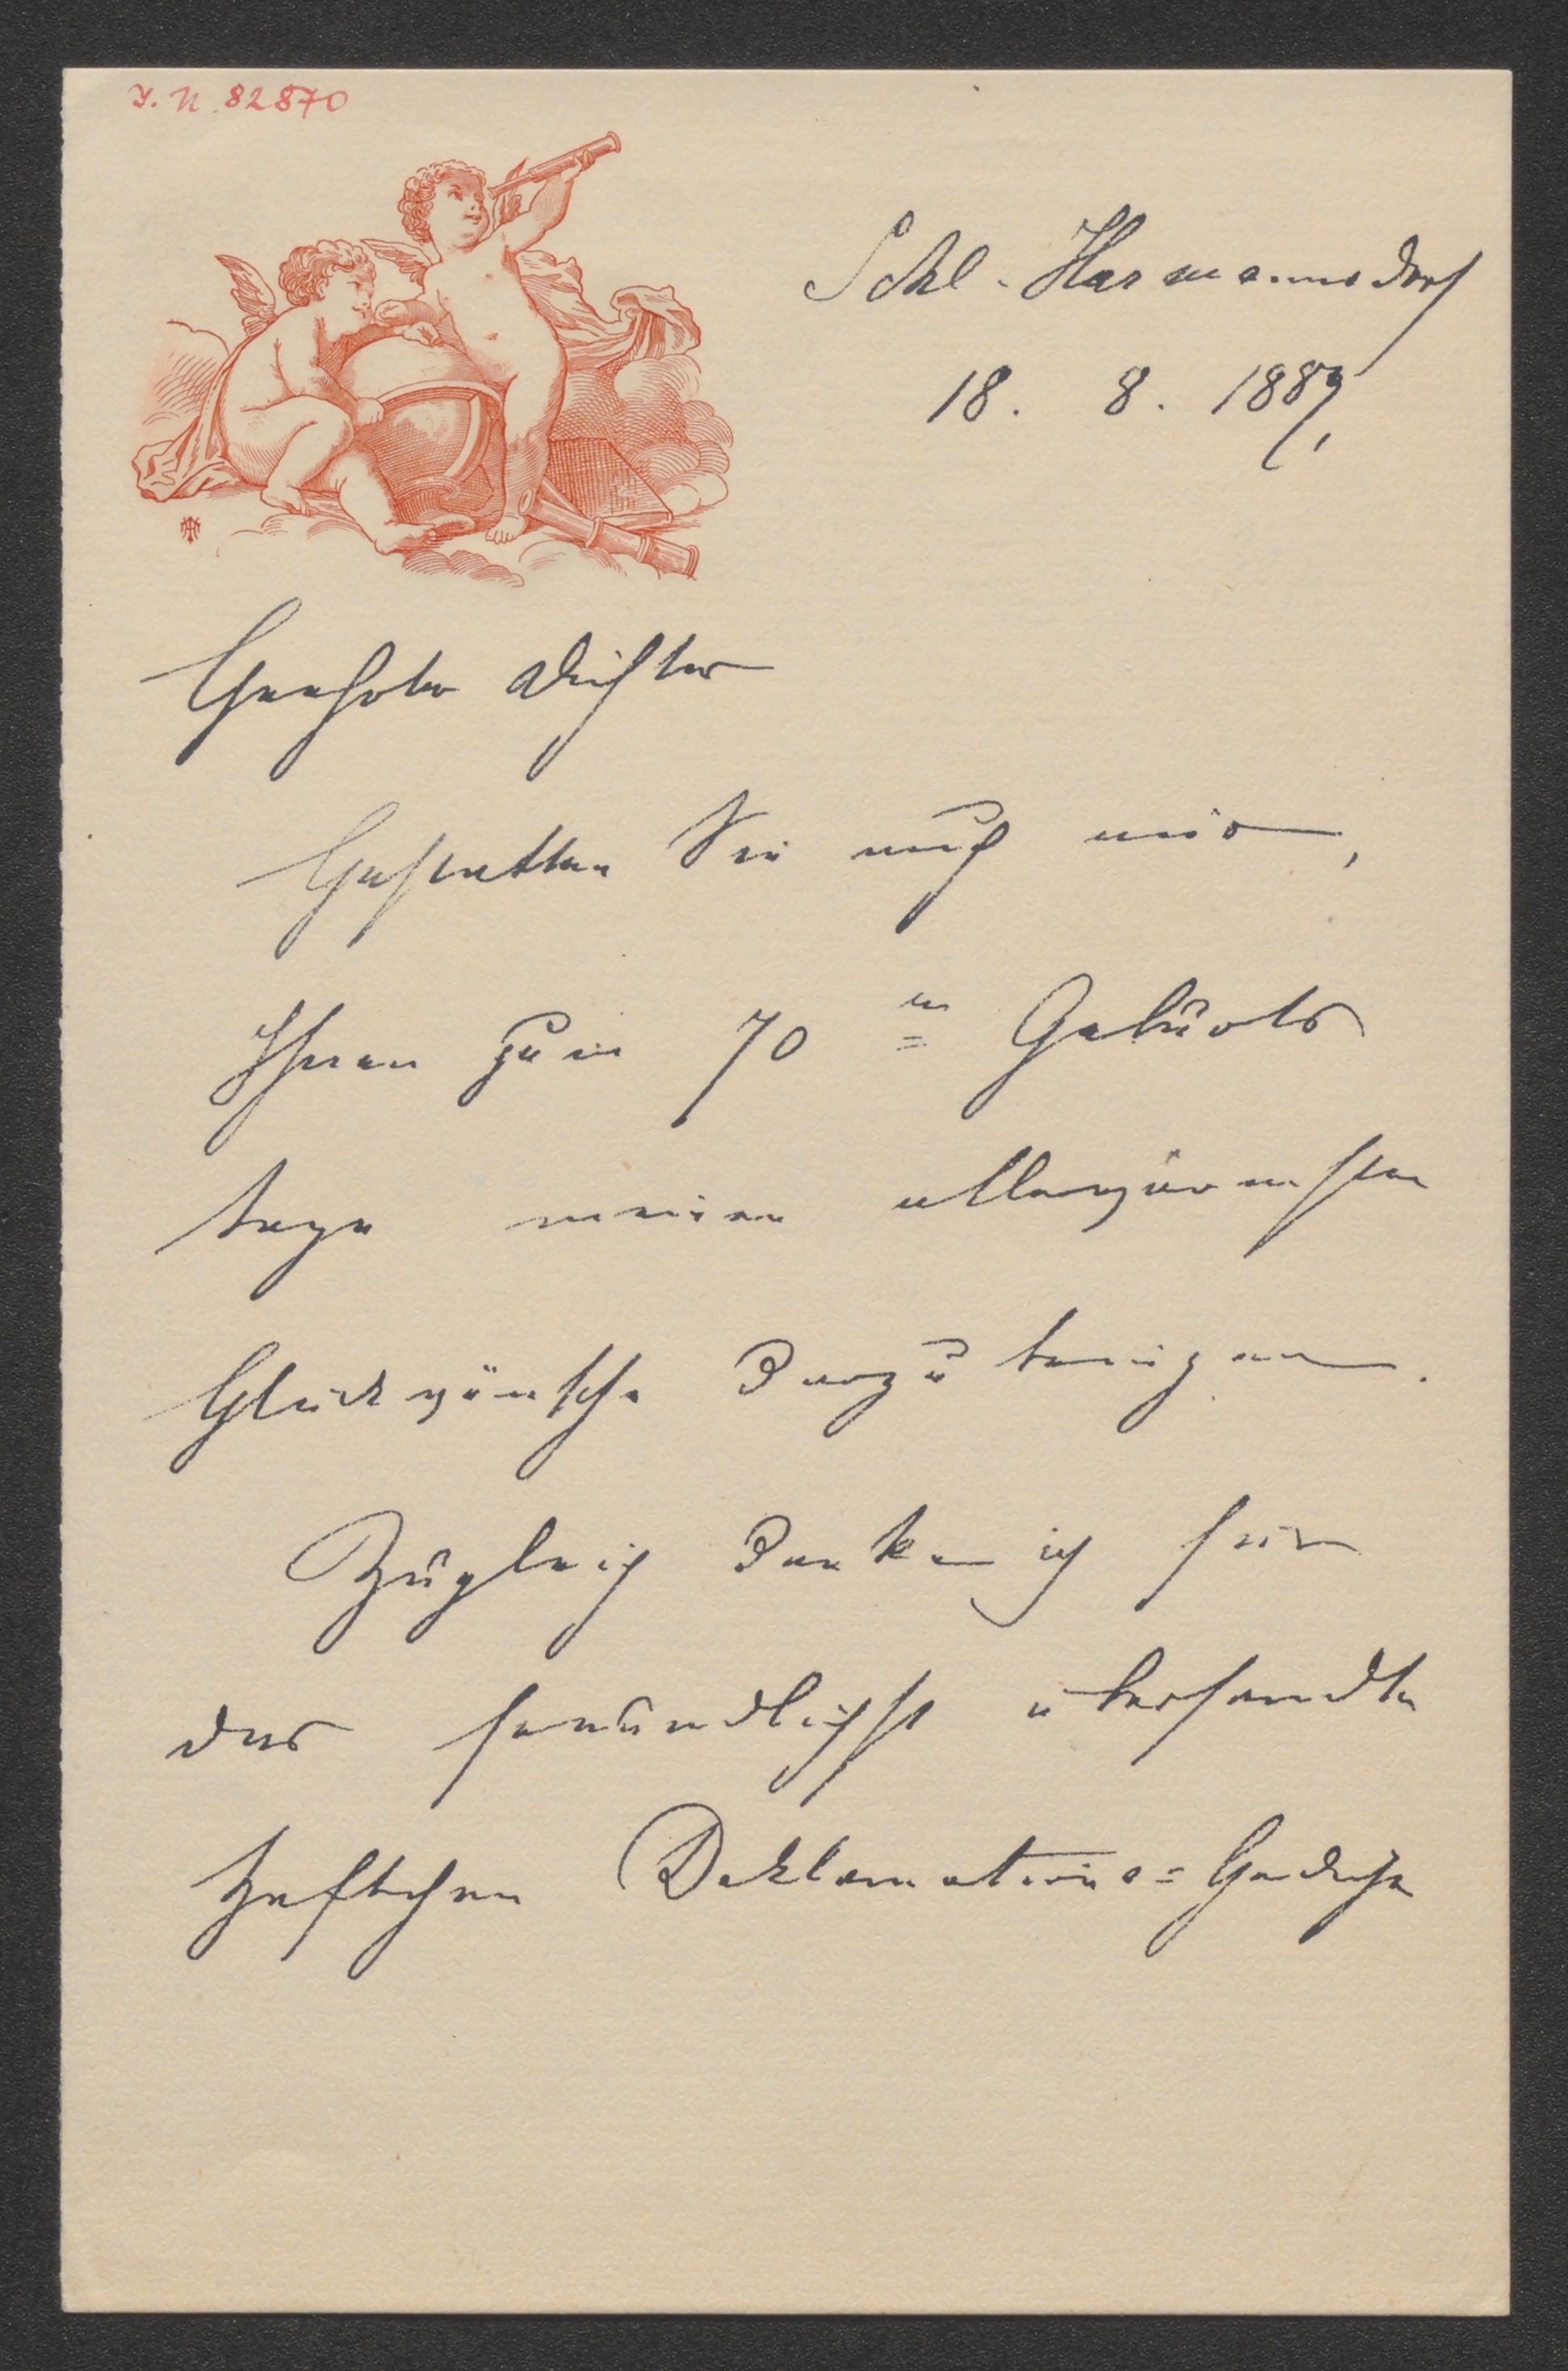 I. N. 82870
Schl. Harmannsdorf
18. 8. 1887
Geehrter Dichter
Gestatten Sie auch mir,
Ihnen zum 70 en Geburts
tage meine allerwärmsten
Glückwünsche darzubringen.
Zugleich danke ich für
das freundlichst übersandte
Heftchen Deklamations=Gedichte